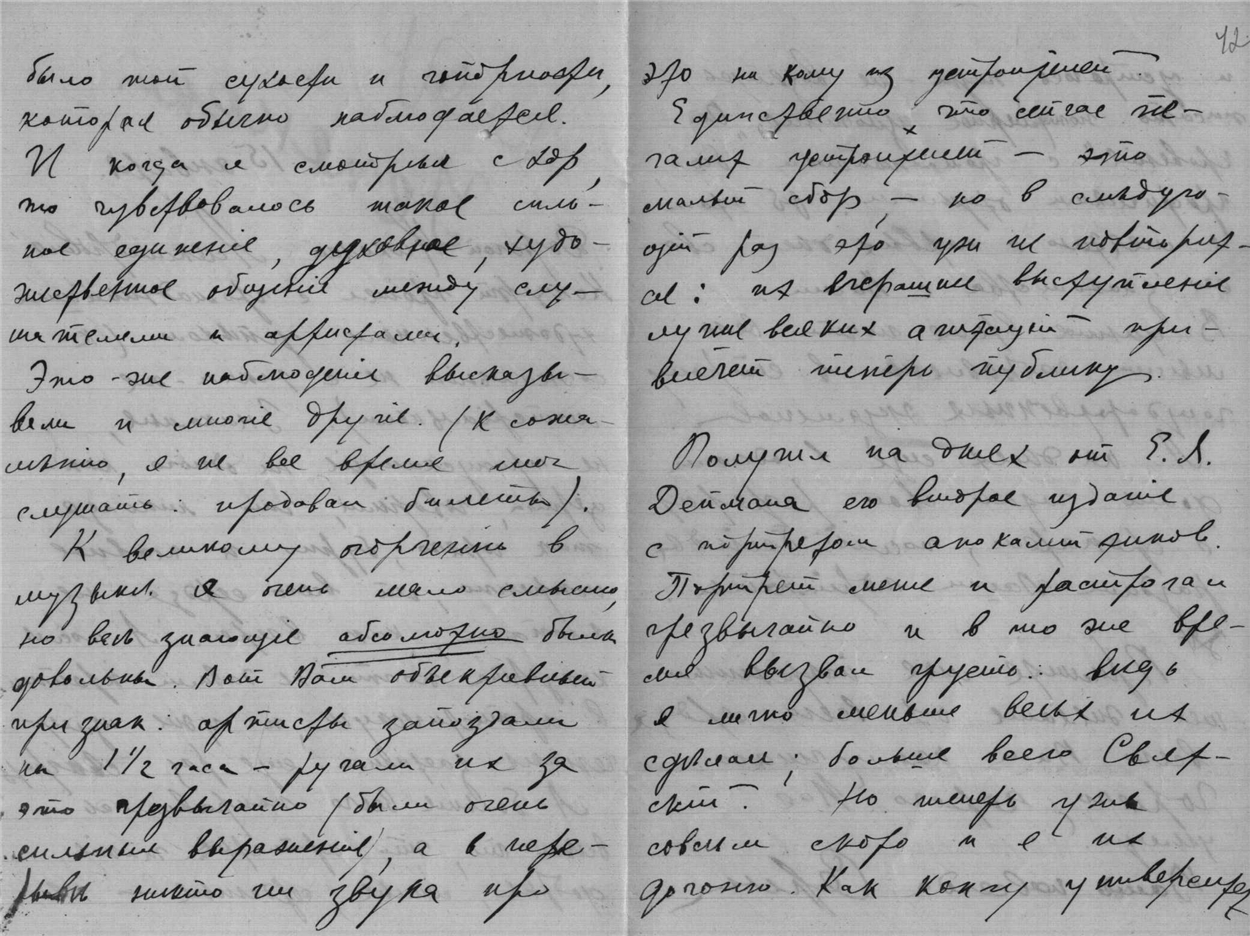 было той сухости и чопорности,
которая обычно наблюдается.
И когда я смотрѣл с хор,
то чувствовалось такое силь-
ное единеніе, духовное, худо-
жественное общеніе между слу-
шателями и артистами.
Это-же наблюденіе высказы-
вали и многіе другіе. (К сожа-
лѣнію, я не все время мог
слушать: продавал билеты).
К великому огорченію в
музыкѣ я очень мало смыслю,
но всѣ знающіе абсолютно были
довольны. Вот Вам объективный
признак: артисты запоздали
на 1 1/2 часа – ругали их за
это чрезвычайно (были очень
сильныя выраженія), а в пере-
рывѣ никто ни звука про
42
это ни кому из устроителей.
Единственно, что сейчас пе-
чалит устроителей – это
малый сбор, – но в слѣдую-
щій раз это уж не повторит-
ся: их вчерашнее выступленіе
лучше всяких агитацій при-
влечет теперь публику.
Получил на днях от Е. Я.
его второе изданіе
с портретом апокалиптиков.
Портрет меня и растрогал
чрезвычайно и в то же вре-
мя вызвал грусть: вѣдь
я лично меньше всѣх их
сдѣлал; больше всего Свят-
скій. Но теперь уже
совсѣм скоро и я их
догоню. Как кончу университет